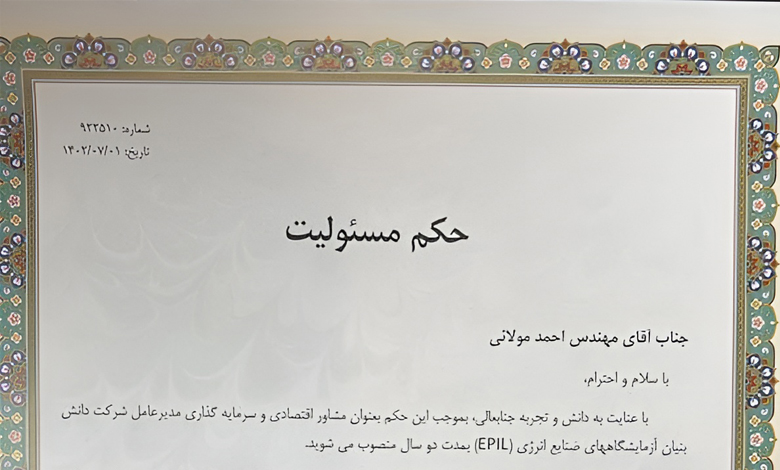 شماره: ۹۲۲۵۱۰
تاریخ: ۱۴۰۲/۰۷/۰۱
حکم مسئولیت
جناب آقای مهندس احمد مولائی
با سلام و احترام،
با عنایت به دانش و تجربه جنابعالی، بموجب این حکم بعنوان مشاور اقتصادی و سرمایه گذاری مدیرعامل شرکت دانش
بنیان آزمایشگاههای صنایع انرژی (EPIL) بمدت دو سال منصوب می شوید.